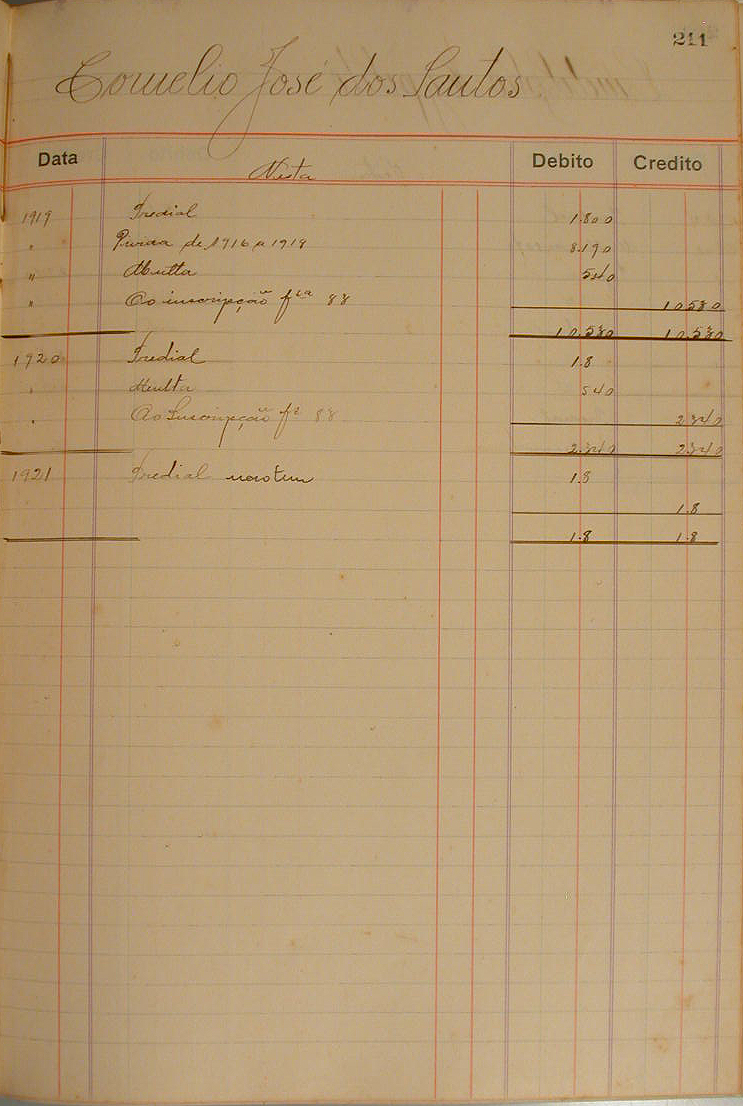 211
Cornelio José dos Santos
Data Nesta Debito Credito
1919 Predial 1.800
" de 1916 a 1918 8.190
" Multa 540
" Ao inscripção fla 88 10.530
10.530 10.530
1920 Predial 1.8
" Multa 540
" Ao Inscripção fl 88 2.340
2.340 2.340
1921 Predial 1.8
1.8
1.8 1.8